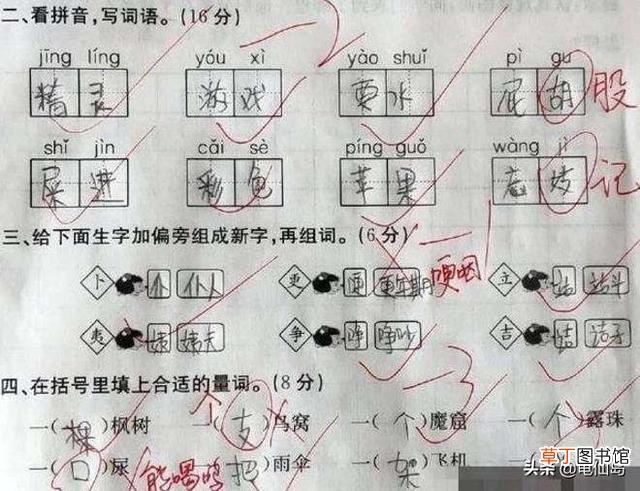 二、看拼音,写词语。(16分)
jīng líng yóu xì yào shuǐ pì gu
精灵 游戏 要水 屁胡 股
shǐ jìn cǎi sè píng guǒ wàng jì
屎进 彩色 苹果 忘 记
三、给下面生字加偏旁组成新字,再组词。(6分)
卜 仆 仆人 更 哽 更年期 哽咽 立 站 站斗
夷 姨 姨夫 争 净 净吵 吉 结 结子
四、在括号里填上合适的量词。(8分)
一(棵)枫树 一(支)鸟窝 个 一(个)魔窟 一(个)露珠
一(口)尿 能喝吗 一(把)雨伞 一(架)飞机
草丁图书馆
头条@龟仙岛